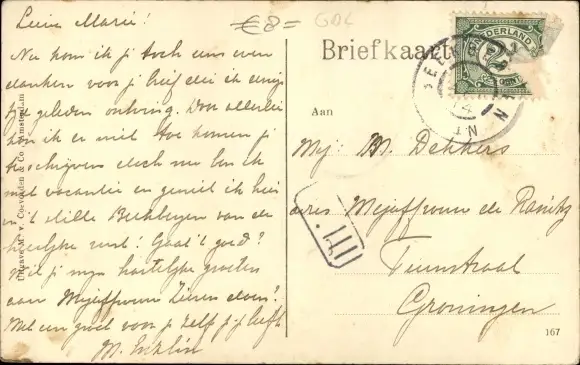 Lieve Marie!
Nu kom ik je toch eens even
danken voor je brief die ik enige
tijd geleden ontving. Door allerlei
kon ik er niet toe komen je
te schrijven doch nu ben ik
met vacantie en geniet ik hier
in 't stille Beekbergen van de
heerlijke rust! Gaat 't goed?
Wil je mijn hartelijke groeten
aan Mejuffrouw doen?
Met een groet voor je zelf je
M.
€8= GDL
Briefkaart
NEDERLAND
Aan
Mej: M. Dekkers
adres Mejuffrouw de
Groningen
III.
167
Uitgave M. v. Coevorden & Co. Amsterdam